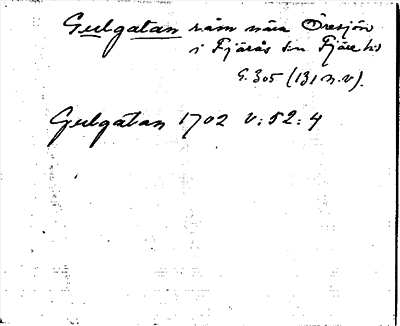 Gulgatan råm nära Öresjön
i Fjärås sn Fjäre hd
G. 305 (131 n.v).
Gulgatan 1702 V: 52: 4